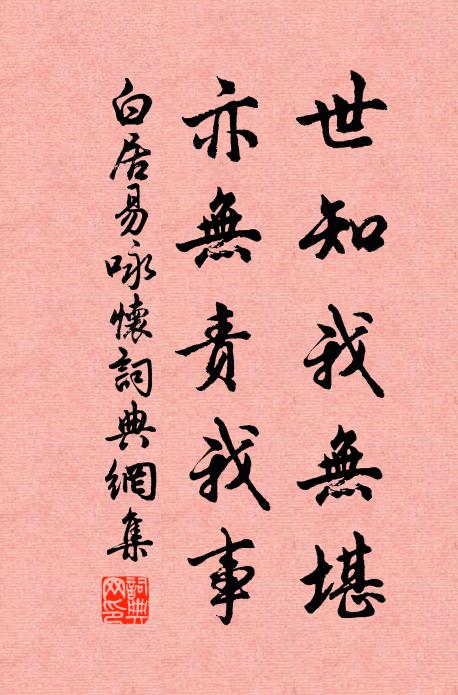 世知我無堪
亦無責我事
白居易咏懷詞典網集
詞典网印